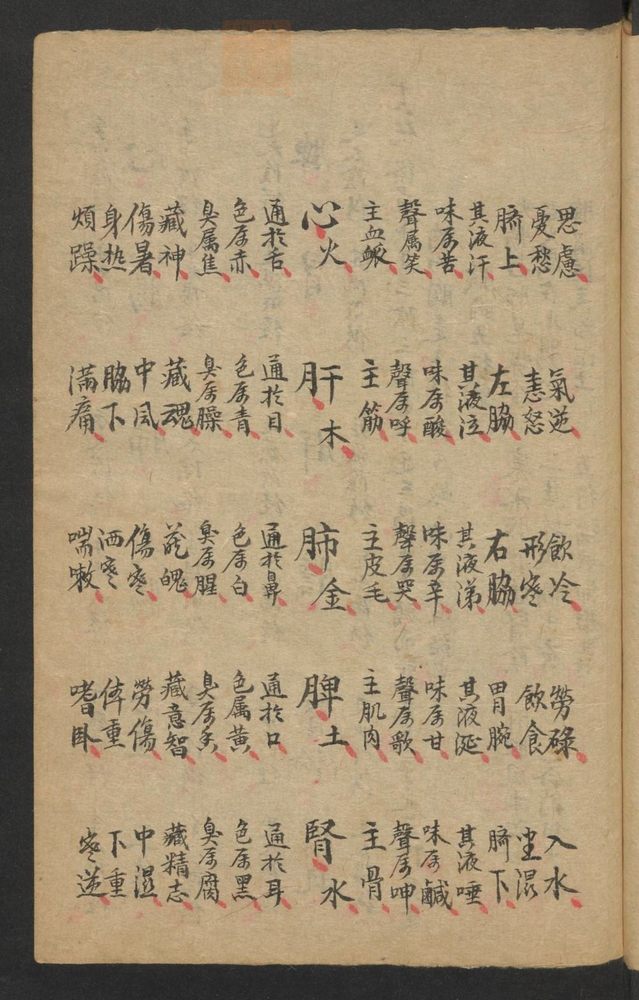 思慮 氣逆 飲冷 勞碌 入水
憂愁 恚怒 形寒 飲食 坐湿
臍上 左脇 右脇 胃腕 臍下
其液汗 其液泣 其液涕 其液涎 其液唾
味属苦 味属酸 味属辛 味属甘 味属鹹
聲属笑 聲属呼 聲属哭 聲属歌 聲属呻
主血脈 主筋 主皮毛 主肌肉 主骨
心火 肝木 肺金 脾土 腎水
通於舌 通於目 通於鼻 通於口 通於耳
色属赤 色属青 色属白 色属黄 色属黑
臭属焦 臭属臊 臭属腥 臭属香 臭属腐
藏神 藏魂 藏魄 藏意智 藏精志
傷暑 中風 傷寒 勞傷 中湿
身热 脇下 洒寒 体重 下重
煩躁 滿痛 喘嗽 嗜卧 寒逆